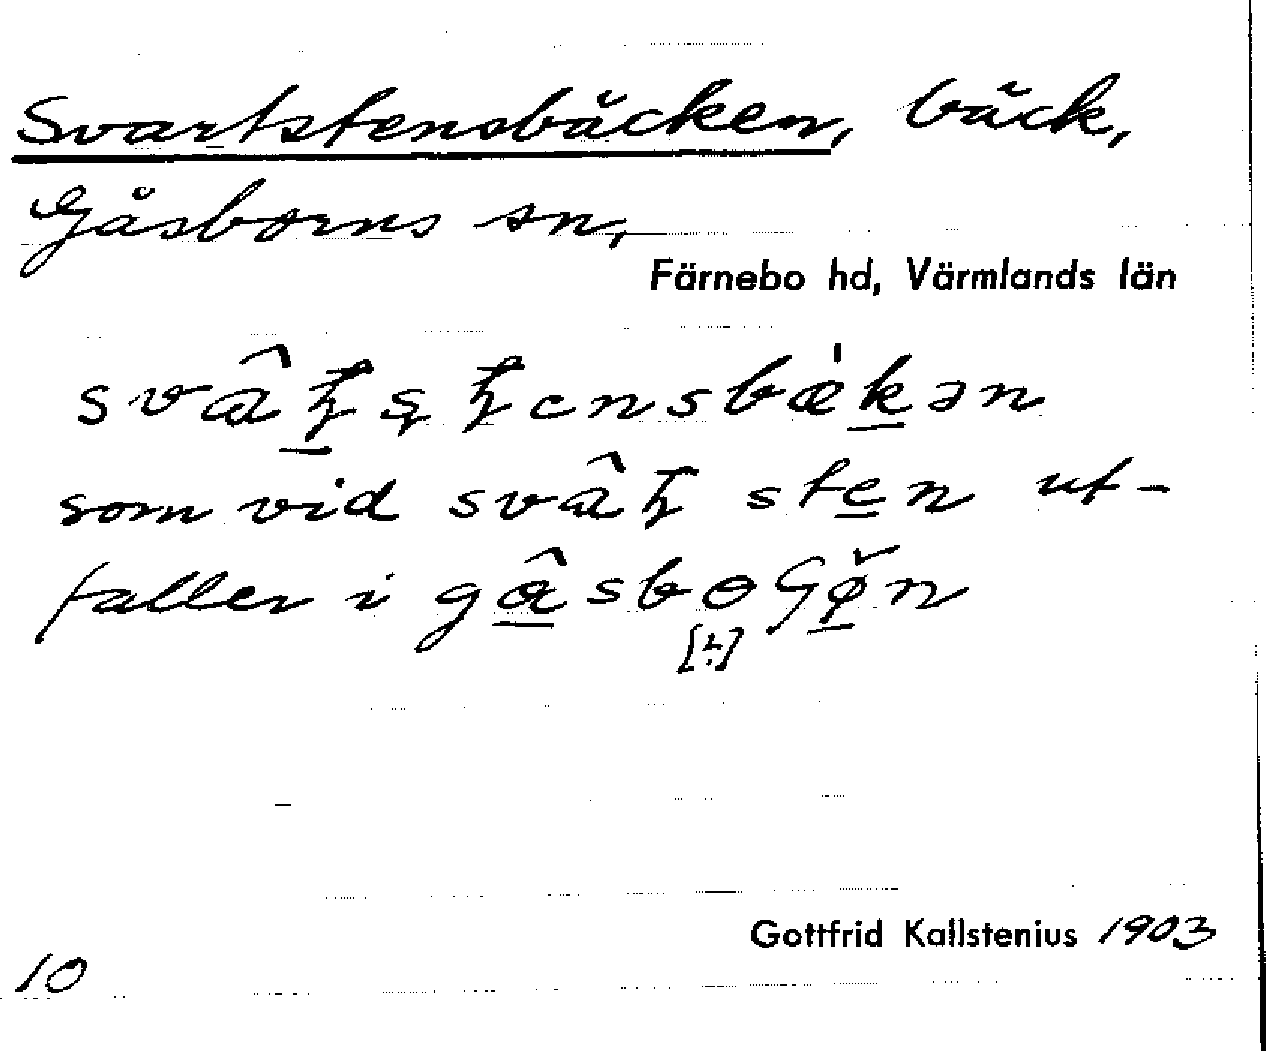 Svartstensbäcken, bäck,
Gåsborns sn,
Färnebo hd, Värmlands län
svât̠ʂʈensbæ̍k̠ən
som vid svâʈ ste̠n ut-
faller i gå̠̂sboGø̠̌n
[!]
Gottfrid Kallstenius 1903
10